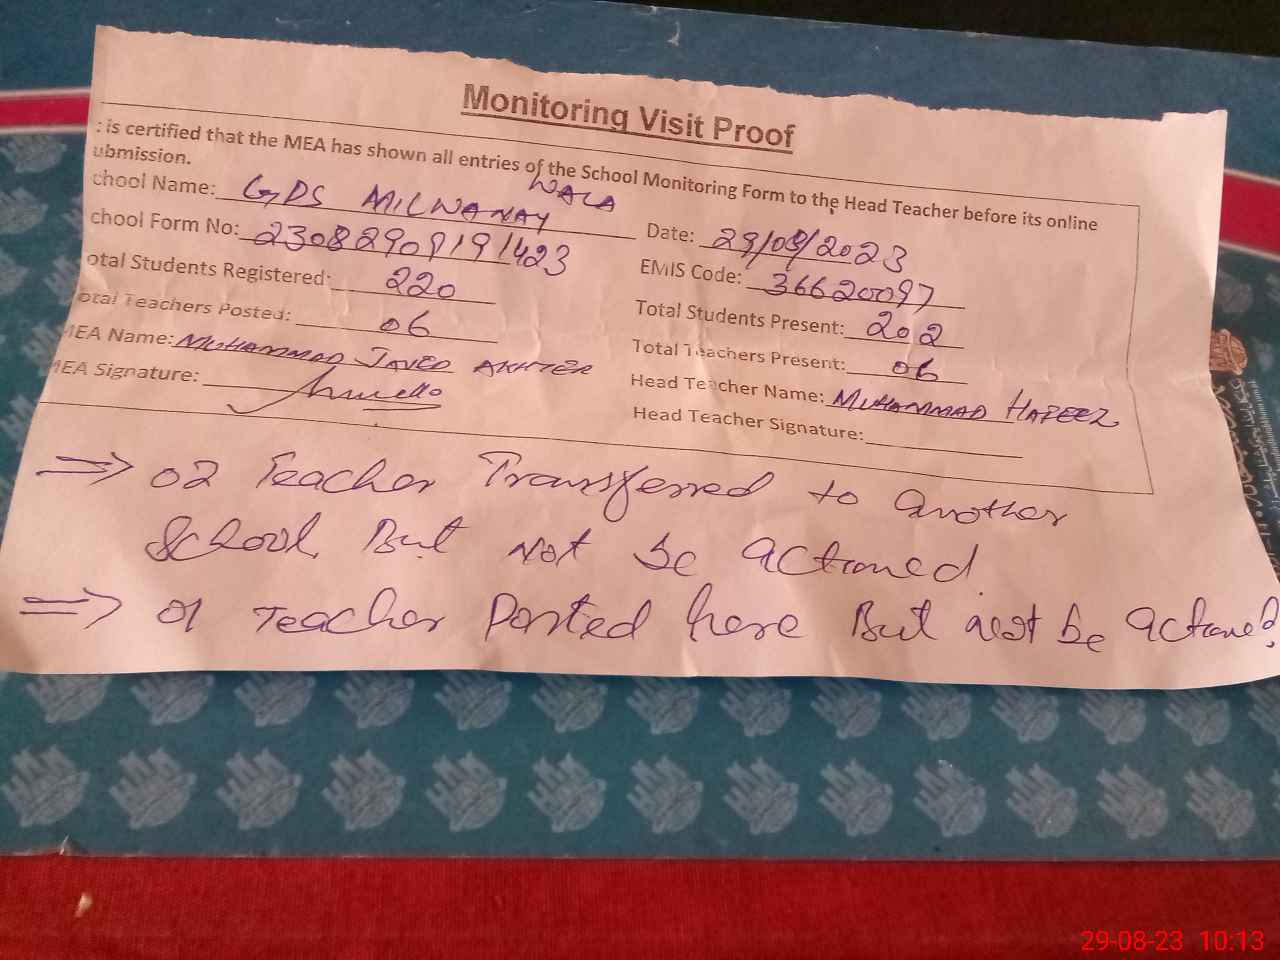 Monitoring Visit Proof
: is certified that the MEA has shown all entries of the School Monitoring Form to the Head Teacher before its online
ubmission.
chool Name: GPS MILWANAY WALA
Date: 29/08/2023
chool Form No: 23082909191423
EMIS Code: 36620097
otal Students Registered: 220
Total Students Present: 202
otal Teachers Posted: 06
Total Teachers Present: 06
MEA Name: MUHAMMAD JAVED AKHTER
Head Teacher Name: MUHAMMAD HAFEEZ
MEA Signature:
Head Teacher Signature:
⇒ 02 Teacher Transferred to another
School But not be actioned.
⇒ 01 Teacher Posted here But not be actioned.
29-08-23 10:13